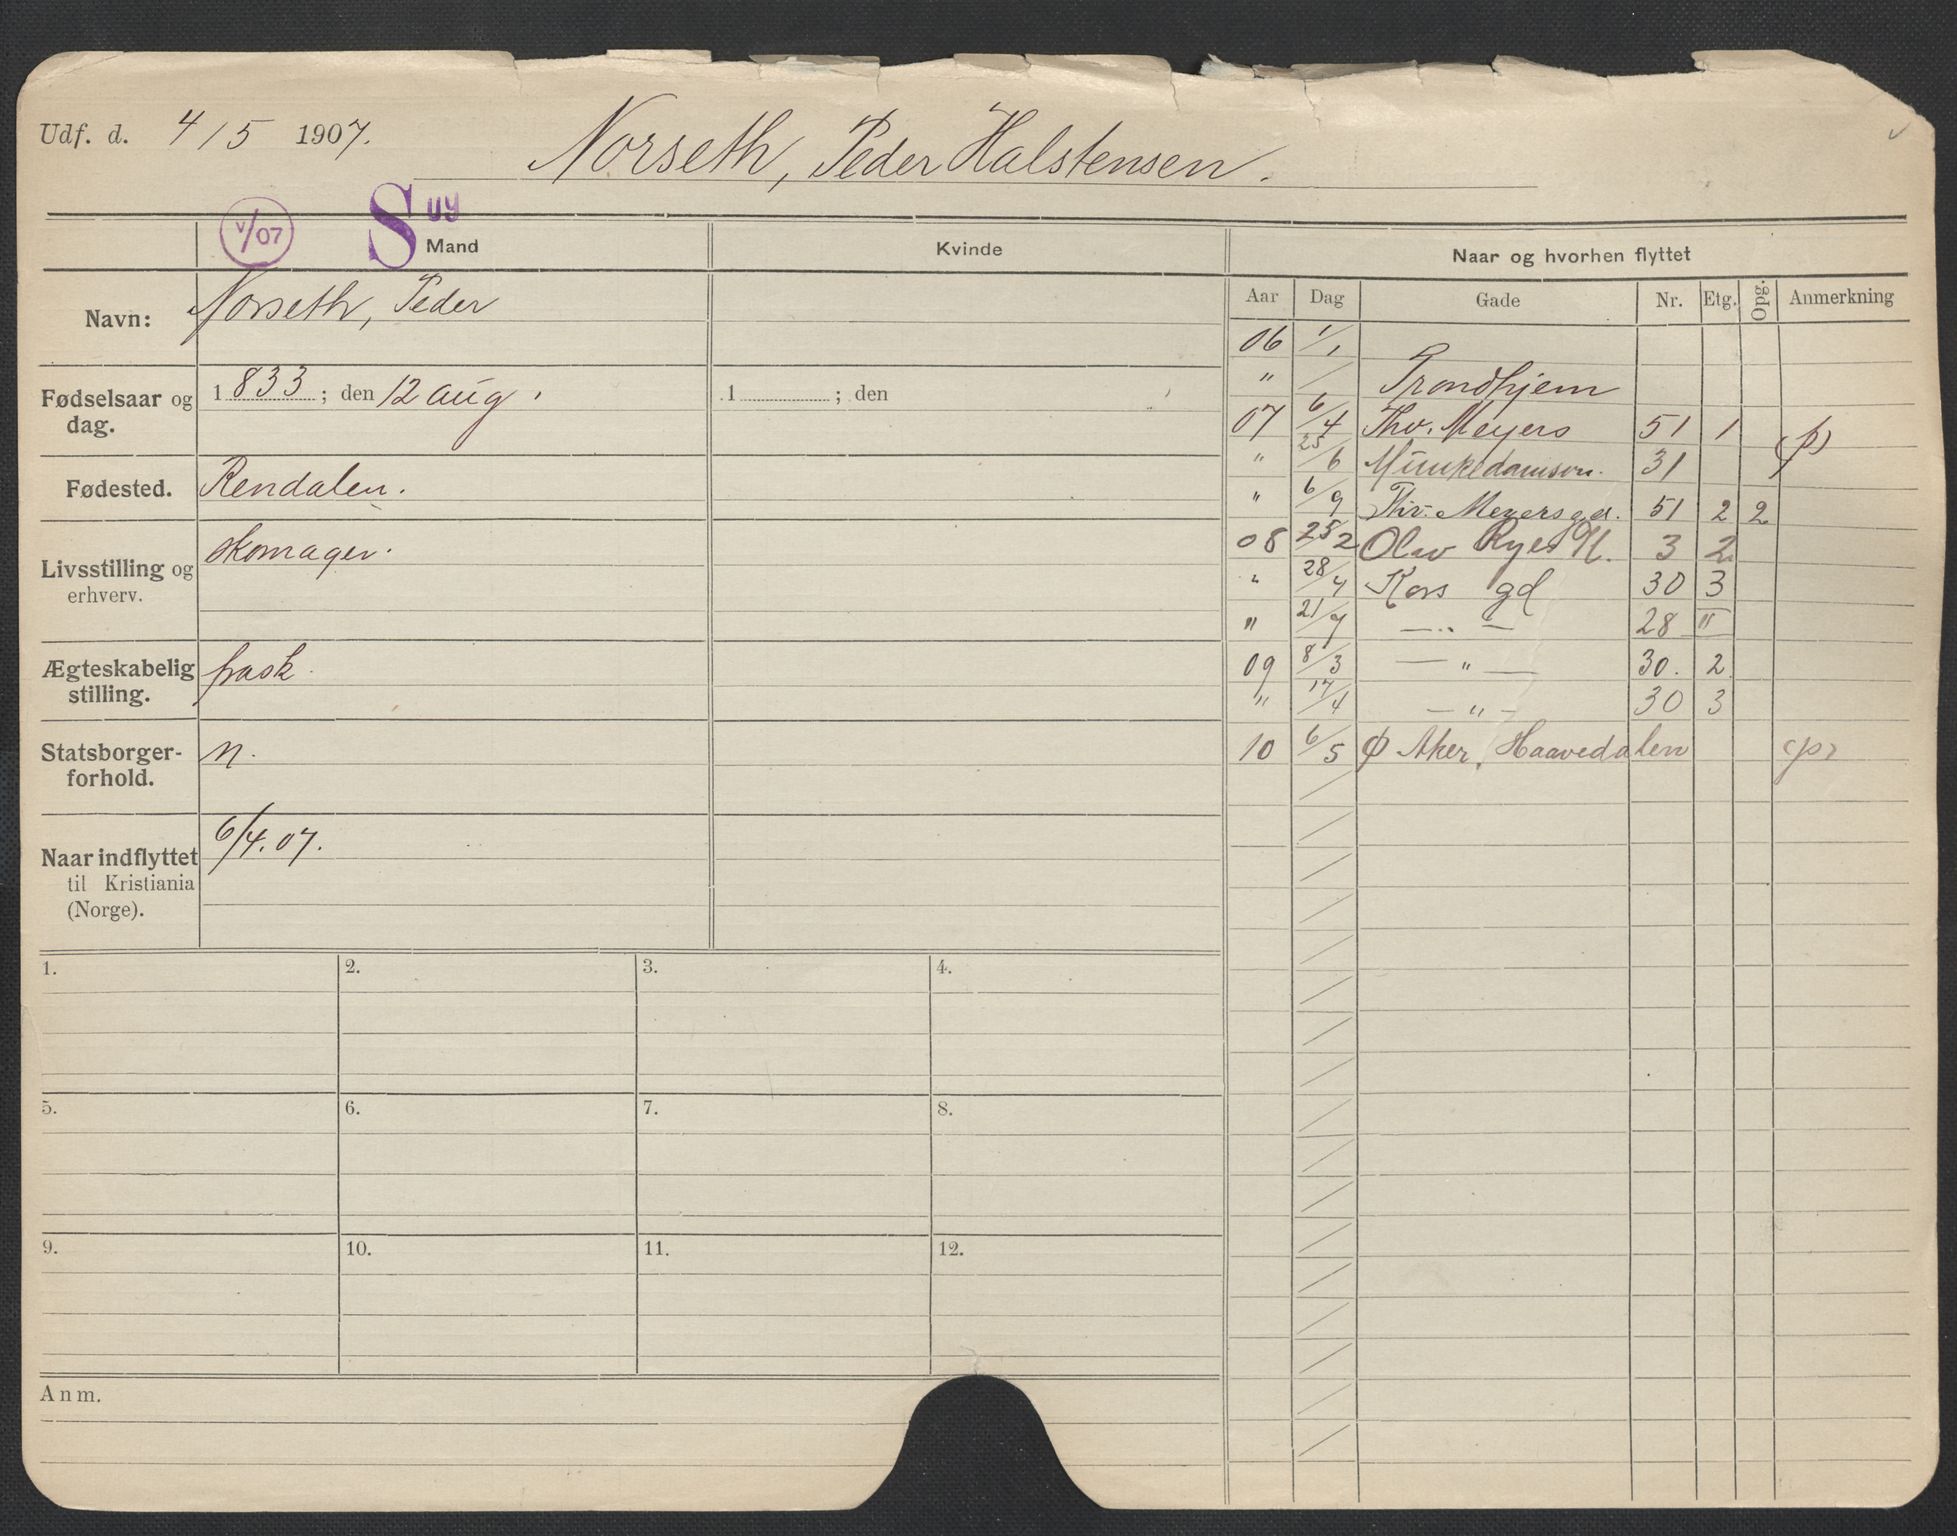 Udf. d. 4/5 1907.
Norseth, Peder Halstensen.
V/07 S uy
Mand Kvinde Naar og hvorhen flyttet
Aar Dag Gade Nr. Etg. Opg. Anmerkning
Navn: Norseth, Peder
Fødselsaar og dag. 1833; den 12 aug. 1 ; den
Fødested. Rendalen.
Livsstilling og erhverv. skomager.
Ægteskabelig stilling. frask.
Statsborgerforhold. n.
Naar indflyttet til Kristiania (Norge). 6/4.07.
06 1/1
" / Trondhjem
07 6/4 Thv. Meyers 51 1 (p)
" 25/6 Munkedamsvn. 31
" 6/9 Thv. Meyersgd. 51 2 2
08 25/2 Olav Ryes Pl. 3 2
" 28/4 Kors gd 30 3
" 21/9 — " — 28 "
09 8/3 — " — 30. 2
" 17/4 — " — 30 3
10 6/5 Ø Aker, Haavedalen (p)
1. 2. 3. 4.
5. 6. 7. 8.
9. 10. 11. 12.
Anm.